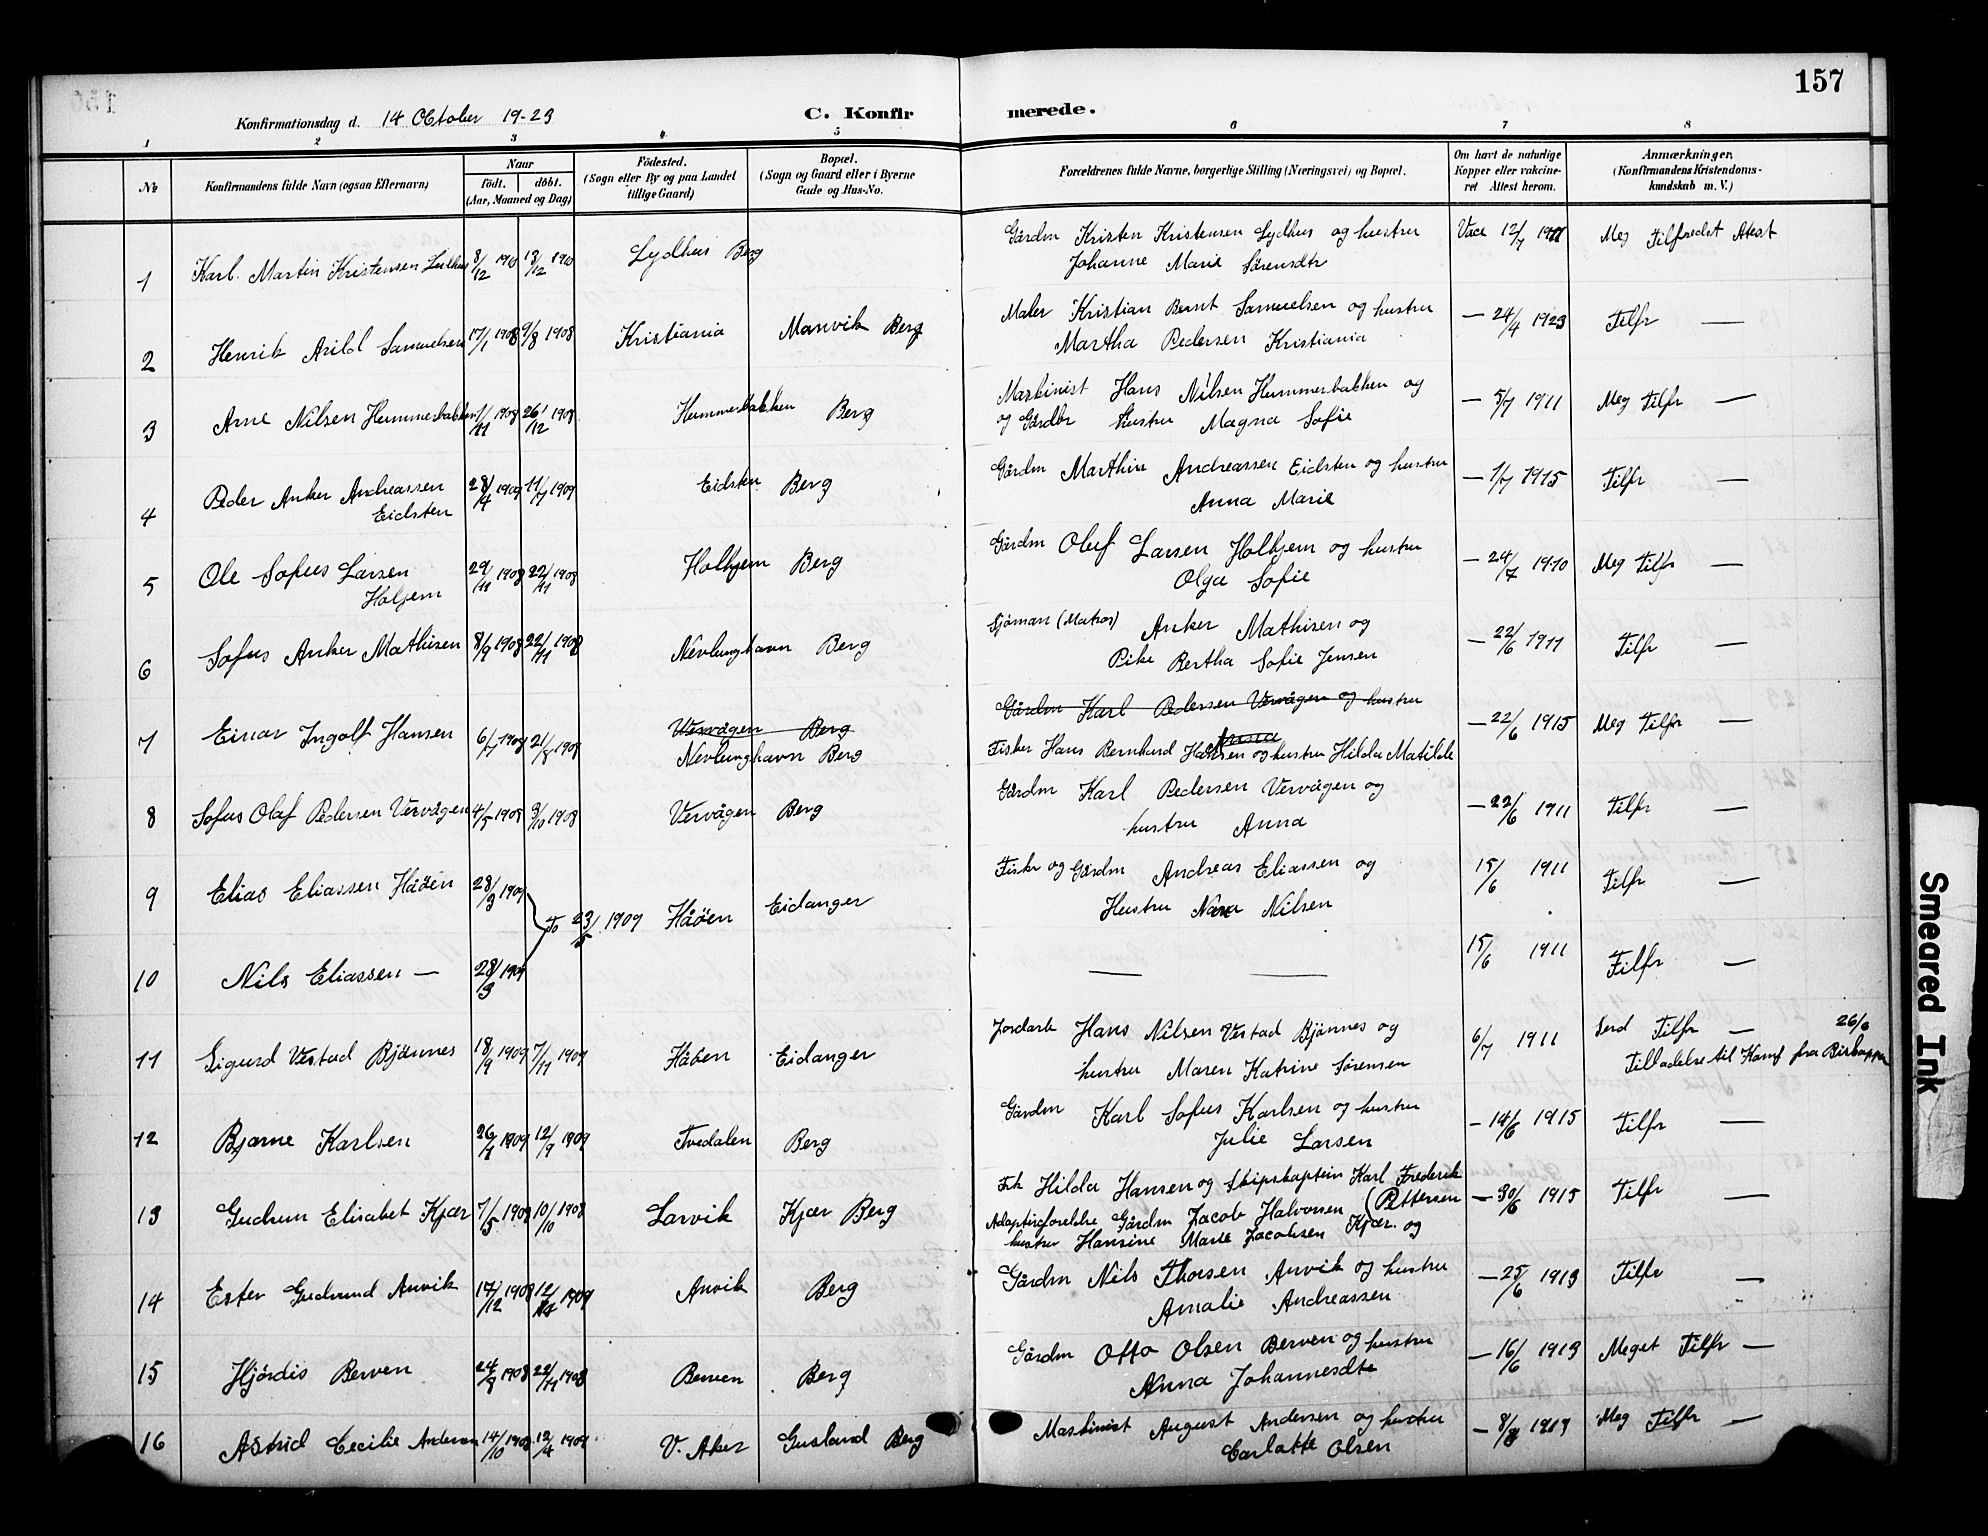 157
Konfirmationsdag d. 14 Oktober 19-23
C. Konfirmerede.
1 2 3 4 5 6 7 8
No
Konfirmandens fulde Navn (ogsaa Efternavn)
Naar
födt. döbt.
(Aar, Maaned og Dag)
Födested.
(Sogn eller By og paa Landet
tillige Gaard)
Bopæl.
(Sogn og Gaard eller i Byerne
Gade og Hus-No.
Forældrenes fulde Navne, borgerlige Stilling (Næringsvei) og Bopæl.
Om havt de naturlige
Kopper eller vakcine-
ret Attest herom.
Anmærkninger.
(Konfirmandens Kristendoms-
kundskab m. V.)
1 Karl Martin Kristensen 3/12 190 13/12 190 Lydhus Berg Gårdm Kristen Kristensen Lydhus og hustru Vacc 12/7 1911 Meg Tilfredst Atest
Johanne Marie Sörensdtr
2 Henrik Arild Samuelsen 17/1 1908 9/8 1908 Kristiania Manvik Berg Maler Kristian Bernt Samuelsen og hustru — 24/4 1923 Tilfr —
Martha Pedersen Kristiania
3 Arne Nilsen Hummerbakken 1/11 1908 26/12 1908 Hummerbakken Berg Maskinist Hans Nilsen Hummerbakken og — 5/7 1911 Meg Tilfr —
og Gårdbr hustru Magna Sofie
4 Peder Anker Andreassen 28/4 1909 11/7 1909 Eidsten Berg Gårdm Marthin Andreassen Eidsten og hustru — 1/7 1915 Tilfr —
Eidsten
Anna Marie
5 Ole Sofus Larsen 29/11 1908 22/11 1908 Holhjem Berg Gårdm Oluf Larsen Holhjem og hustru — 24/7 1910 Meg Tilfr —
Holjem
Olga Sofie
6 Sofus Anker Mathisen 8/9 1908 22/11 1908 Nevlunghavn Berg Sjöman (Matros) Anker Mathisen og — 22/6 1911 Tilfr —
Pike Bertha Sofie Jensen
7 Einar Ingolf Hansen 6/7 1908 21/8 1908 Vervågen Berg Gårdm Karl Pedersen Vervågen og hustru — 22/6 1915 Meg Tilfr —
Nevlunghavn Berg Fisker Hans Bernhard Hansen og hustru Hilda Matilde
8 Sofus Olaf Pedersen Vervågen 4/8 1908 3/10 1908 Vervågen Berg Gårdm Karl Pedersen Vervågen og — 22/6 1911 Tilfr —
hustru Anna
9 Elias Eliassen Håöen 28/3 1909 Fisker og Gårdm Andreas Eliassen og 15/6 1911 Tilfr —
To 23/5 1909 Håöen Eidanger Hustru Nilsen
10 Nils Eliassen — 28/3 1909 — — 15/6 1911 Tilfr —
11 Sigurd Vestad Bjönnes 18/9 1909 7/11 1909 Håöen Eidanger Jordarb Hans Nilsen Vestad Bjönnes og 6/7 1911 Serd Tilfr — 26/6
hustru Maren Katrine Sörensen Tilladelse til Konf fra Biskoppen
12 Bjarne Karlsen 26/7 1909 12/9 1909 Tvedalen Berg Gårdm Karl Sofus Karlsen og hustru — 14/6 1915 Tilfr —
Julie Larsen
13 Gudrun Elisabet Kjær 7/5 1908 10/10 1908 Larvik Kjær Berg Frk Hilda Hansen og Skipskaptein Karl Frederik — 30/6 1915 Tilfr —
(Pettersen
Adoptivforeldre Gårdm Jacob Halvorsen Kjær og
hustru Hansine Marie Jacobsen
14 Ester Gudrund Anvik 17/12 1908 12/4 1909 Anvik Berg Gårdm Nils Thorsen Anvik og hustru — 25/6 1913 Tilfr —
Amalie Andreassen
15 Hjördis Berven 24/8 1908 22/11 1908 Berven Berg Gårdm Otto Olsen Berven og hustru — 16/6 1913 Meget Tilfr —
Anna Johannesdtr
16 Astrid Cecilie Andersen 14/10 1908 12/4 1909 V. Aker Gusland Berg Maskinist August Andersen og hustru — 1913 Meg Tilfr —
Carlotte Olsen
Smeared Ink